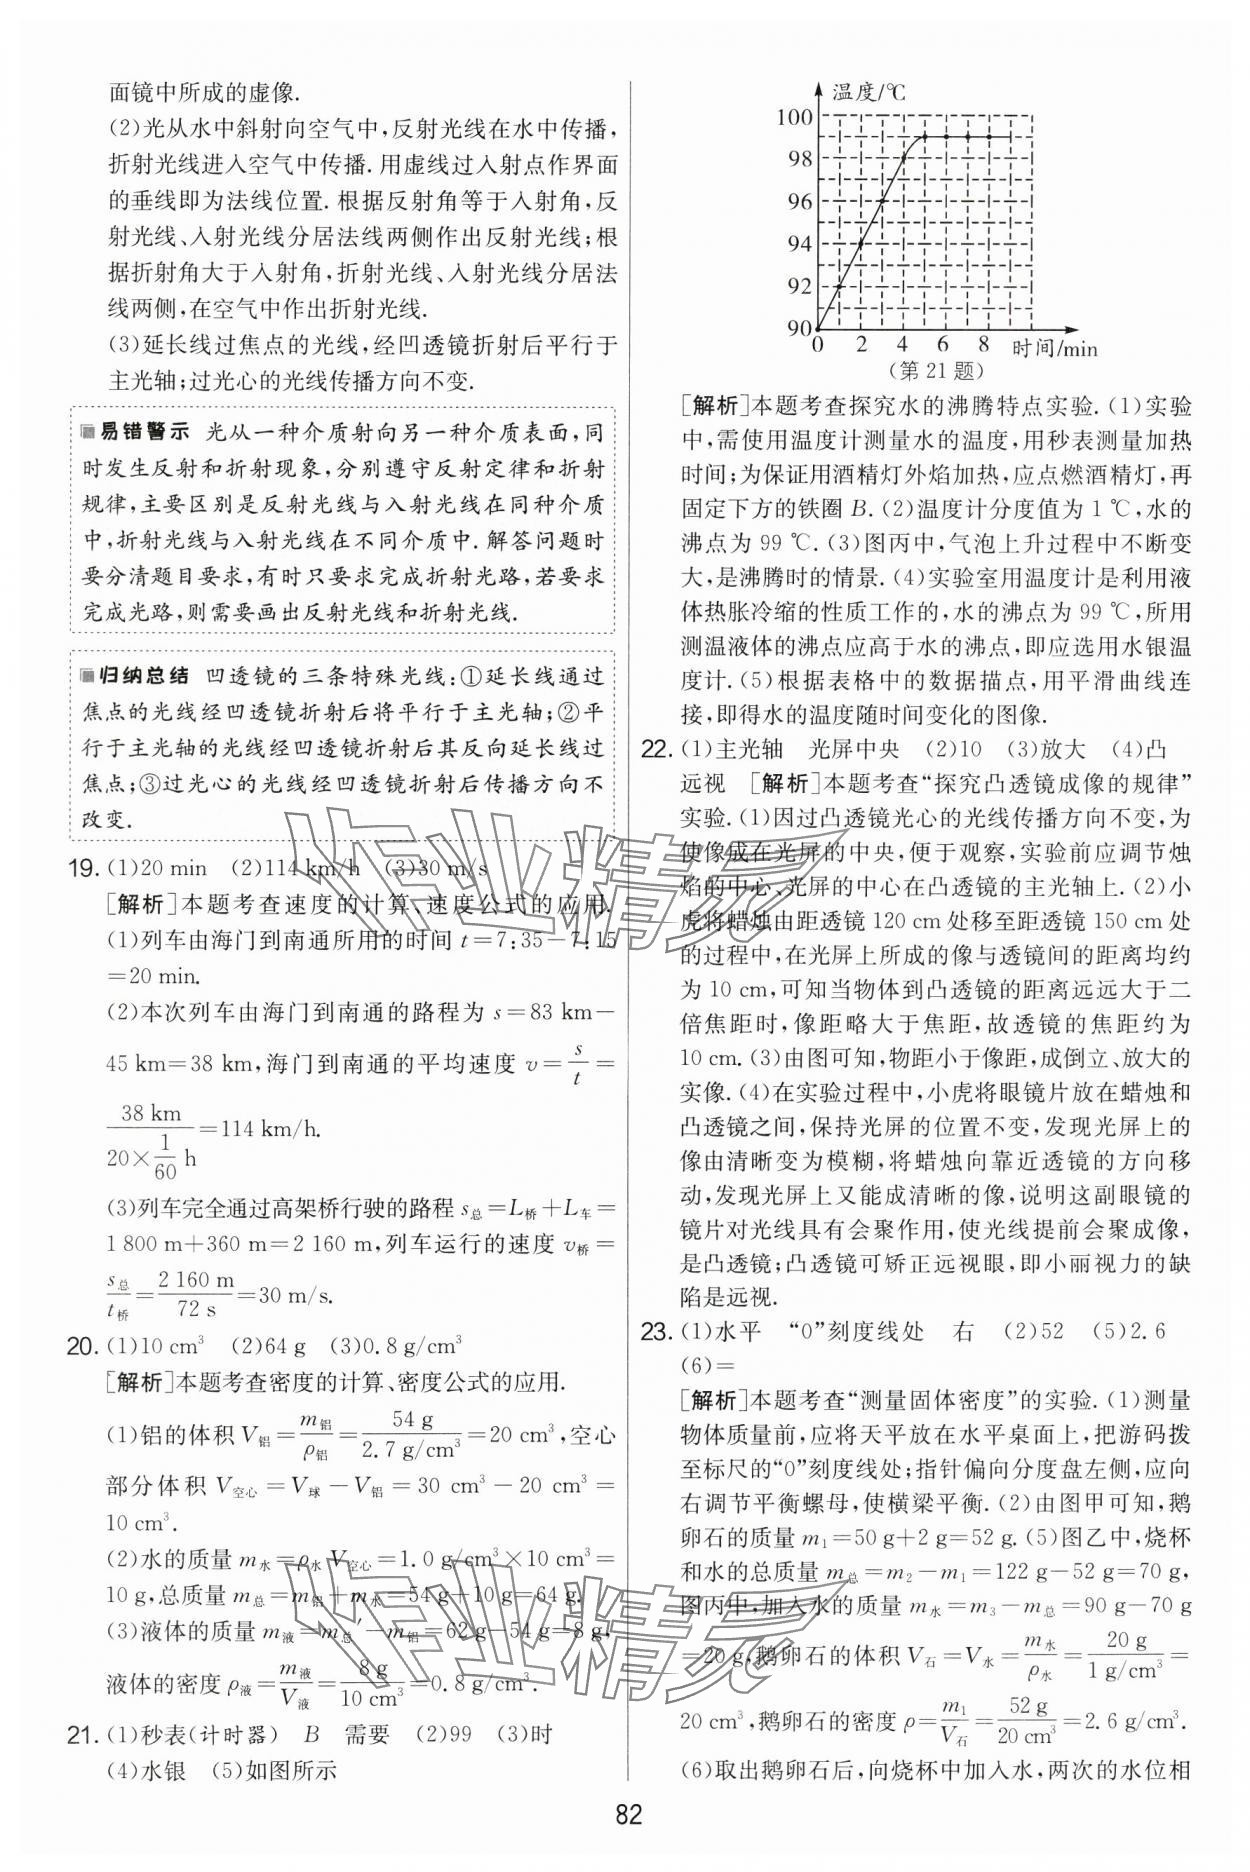 面镜中所成的虚像.
(2)光从水中斜射向空气中,反射光线在水中传播,
折射光线进入空气中传播. 用虚线过入射点作界面
的垂线即为法线位置. 根据反射角等于入射角,反
射光线、入射光线分居法线两侧作出反射光线;根
据折射角大于入射角,折射光线、入射光线分居法
线两侧,在空气中作出折射光线.
(3)延长线过焦点的光线,经凹透镜折射后平行于
主光轴;过光心的光线传播方向不变.
易错警示 光从一种介质射向另一种介质表面,同
时发生反射和折射现象,分别遵守反射定律和折射
规律,主要区别是反射光线与入射光线在同种介质
中,折射光线与入射光线在不同介质中. 解答问题时
要分清题目要求,有时只要求完成折射光路,若要求
完成光路,则需要画出反射光线和折射光线.
归纳总结 凹透镜的三条特殊光线:①延长线通过
焦点的光线经凹透镜折射后将平行于主光轴;②平
行于主光轴的光线经凹透镜折射后其反向延长线过
焦点;③过光心的光线经凹透镜折射后传播方向不
改变.
19. (1)20 min (2)114 km/h (3)30 m/s
[解析]本题考查速度的计算、速度公式的应用.
(1)列车由海门到南通所用的时间 t=7:35-7:15
=20 min.
(2)本次列车由海门到南通的路程为 s=83 km-
45 km=38 km,海门到南通的平均速度 v=s/t=
38 km/(20×1/60 h)=114 km/h.
(3)列车完全通过高架桥行驶的路程 s总=L桥+L车=
1 800 m+360 m=2 160 m,列车运行的速度 v桥=
s总/t桥=2 160 m/72 s=30 m/s.
20. (1)10 cm³ (2)64 g (3)0.8 g/cm³
[解析]本题考查密度的计算、密度公式的应用.
(1)铝的体积 V铝=m铝/ρ铝=54 g/2.7 g/cm³=20 cm³,空心
部分体积 V空心=V球-V铝=30 cm³-20 cm³=
10 cm³.
(2)水的质量 m水=ρ水V空心=1.0 g/cm³×10 cm³=
10 g,总质量 m总=m铝+m水=54 g+10 g=64 g.
(3)液体的质量 m液=m总′-m铝=62 g-54 g=8 g,
液体的密度 ρ液=m液/V液=8 g/10 cm³=0.8 g/cm³.
21. (1)秒表(计时器) B 需要 (2)99 (3)时
(4)水银 (5)如图所示
温度/℃
100
98
96
94
92
90
0 2 4 6 8 时间/min
(第 21 题)
[解析]本题考查探究水的沸腾特点实验. (1)实验
中,需使用温度计测量水的温度,用秒表测量加热
时间;为保证用酒精灯外焰加热,应点燃酒精灯,再
固定下方的铁圈 B. (2)温度计分度值为 1 ℃,水的
沸点为 99 ℃. (3)图丙中,气泡上升过程中不断变
大,是沸腾时的情景. (4)实验室用温度计是利用液
体热胀冷缩的性质工作的,水的沸点为 99 ℃,所用
测温液体的沸点应高于水的沸点,即应选用水银温
度计. (5)根据表格中的数据描点,用平滑曲线连
接,即得水的温度随时间变化的图像.
22. (1)主光轴 光屏中央 (2)10 (3)放大 (4)凸
远视 [解析]本题考查“探究凸透镜成像的规律”
实验. (1)因过凸透镜光心的光线传播方向不变,为
使像成在光屏的中央,便于观察,实验前应调节烛
焰的中心、光屏的中心在凸透镜的主光轴上. (2)小
虎将蜡烛由距透镜 120 cm 处移至距透镜 150 cm 处
的过程中,在光屏上所成的像与透镜间的距离均约
为 10 cm,可知当物体到凸透镜的距离远远大于二
倍焦距时,像距略大于焦距,故透镜的焦距约为
10 cm. (3)由图可知,物距小于像距,成倒立、放大的
实像. (4)在实验过程中,小虎将眼镜片放在蜡烛和
凸透镜之间,保持光屏的位置不变,发现光屏上的
像由清晰变为模糊,将蜡烛向靠近透镜的方向移
动,发现光屏上又能成清晰的像,说明这副眼镜的
镜片对光线具有会聚作用,使光线提前会聚成像,
是凸透镜;凸透镜可矫正远视眼,即小丽视力的缺
陷是远视.
23. (1)水平 “0”刻度线处 右 (2)52 (5)2.6
(6)=
[解析]本题考查“测量固体密度”的实验. (1)测量
物体质量前,应将天平放在水平桌面上,把游码拨
至标尺的“0”刻度线处;指针偏向分度盘左侧,应向
右调节平衡螺母,使横梁平衡. (2)由图甲可知,鹅
卵石的质量 m₁=50 g+2 g=52 g. (5)图乙中,烧杯
和水的总质量 m总=m₂-m₁=122 g-52 g=70 g,
图丙中,加入水的质量 m水=m₃-m总=90 g-70 g
=20 g,鹅卵石的体积 V石=V水=m水/ρ水=20 g/1 g/cm³=
20 cm³,鹅卵石的密度 ρ=m₁/V石=52 g/20 cm³=2.6 g/cm³.
(6)取出鹅卵石后,向烧杯中加入水,两次的水位相
82
作业精灵
作业精灵